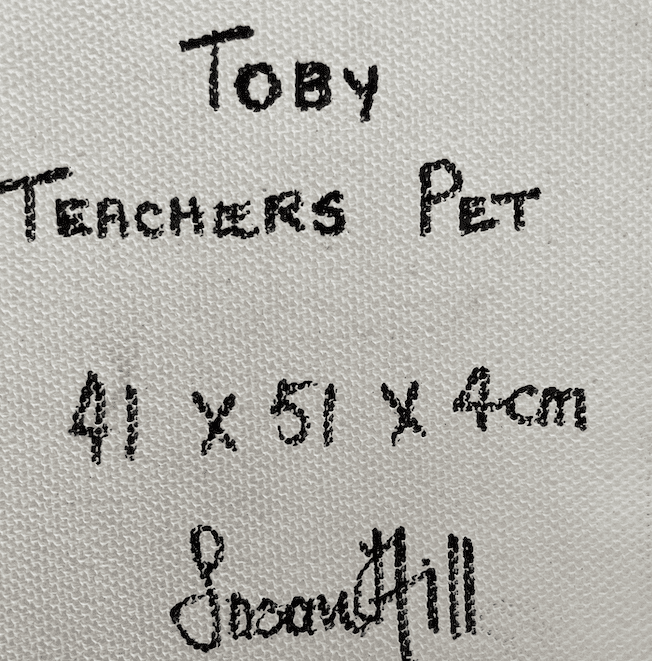 TOBY
TEACHERS PET
41 x 51 x 4cm
Susan Hill